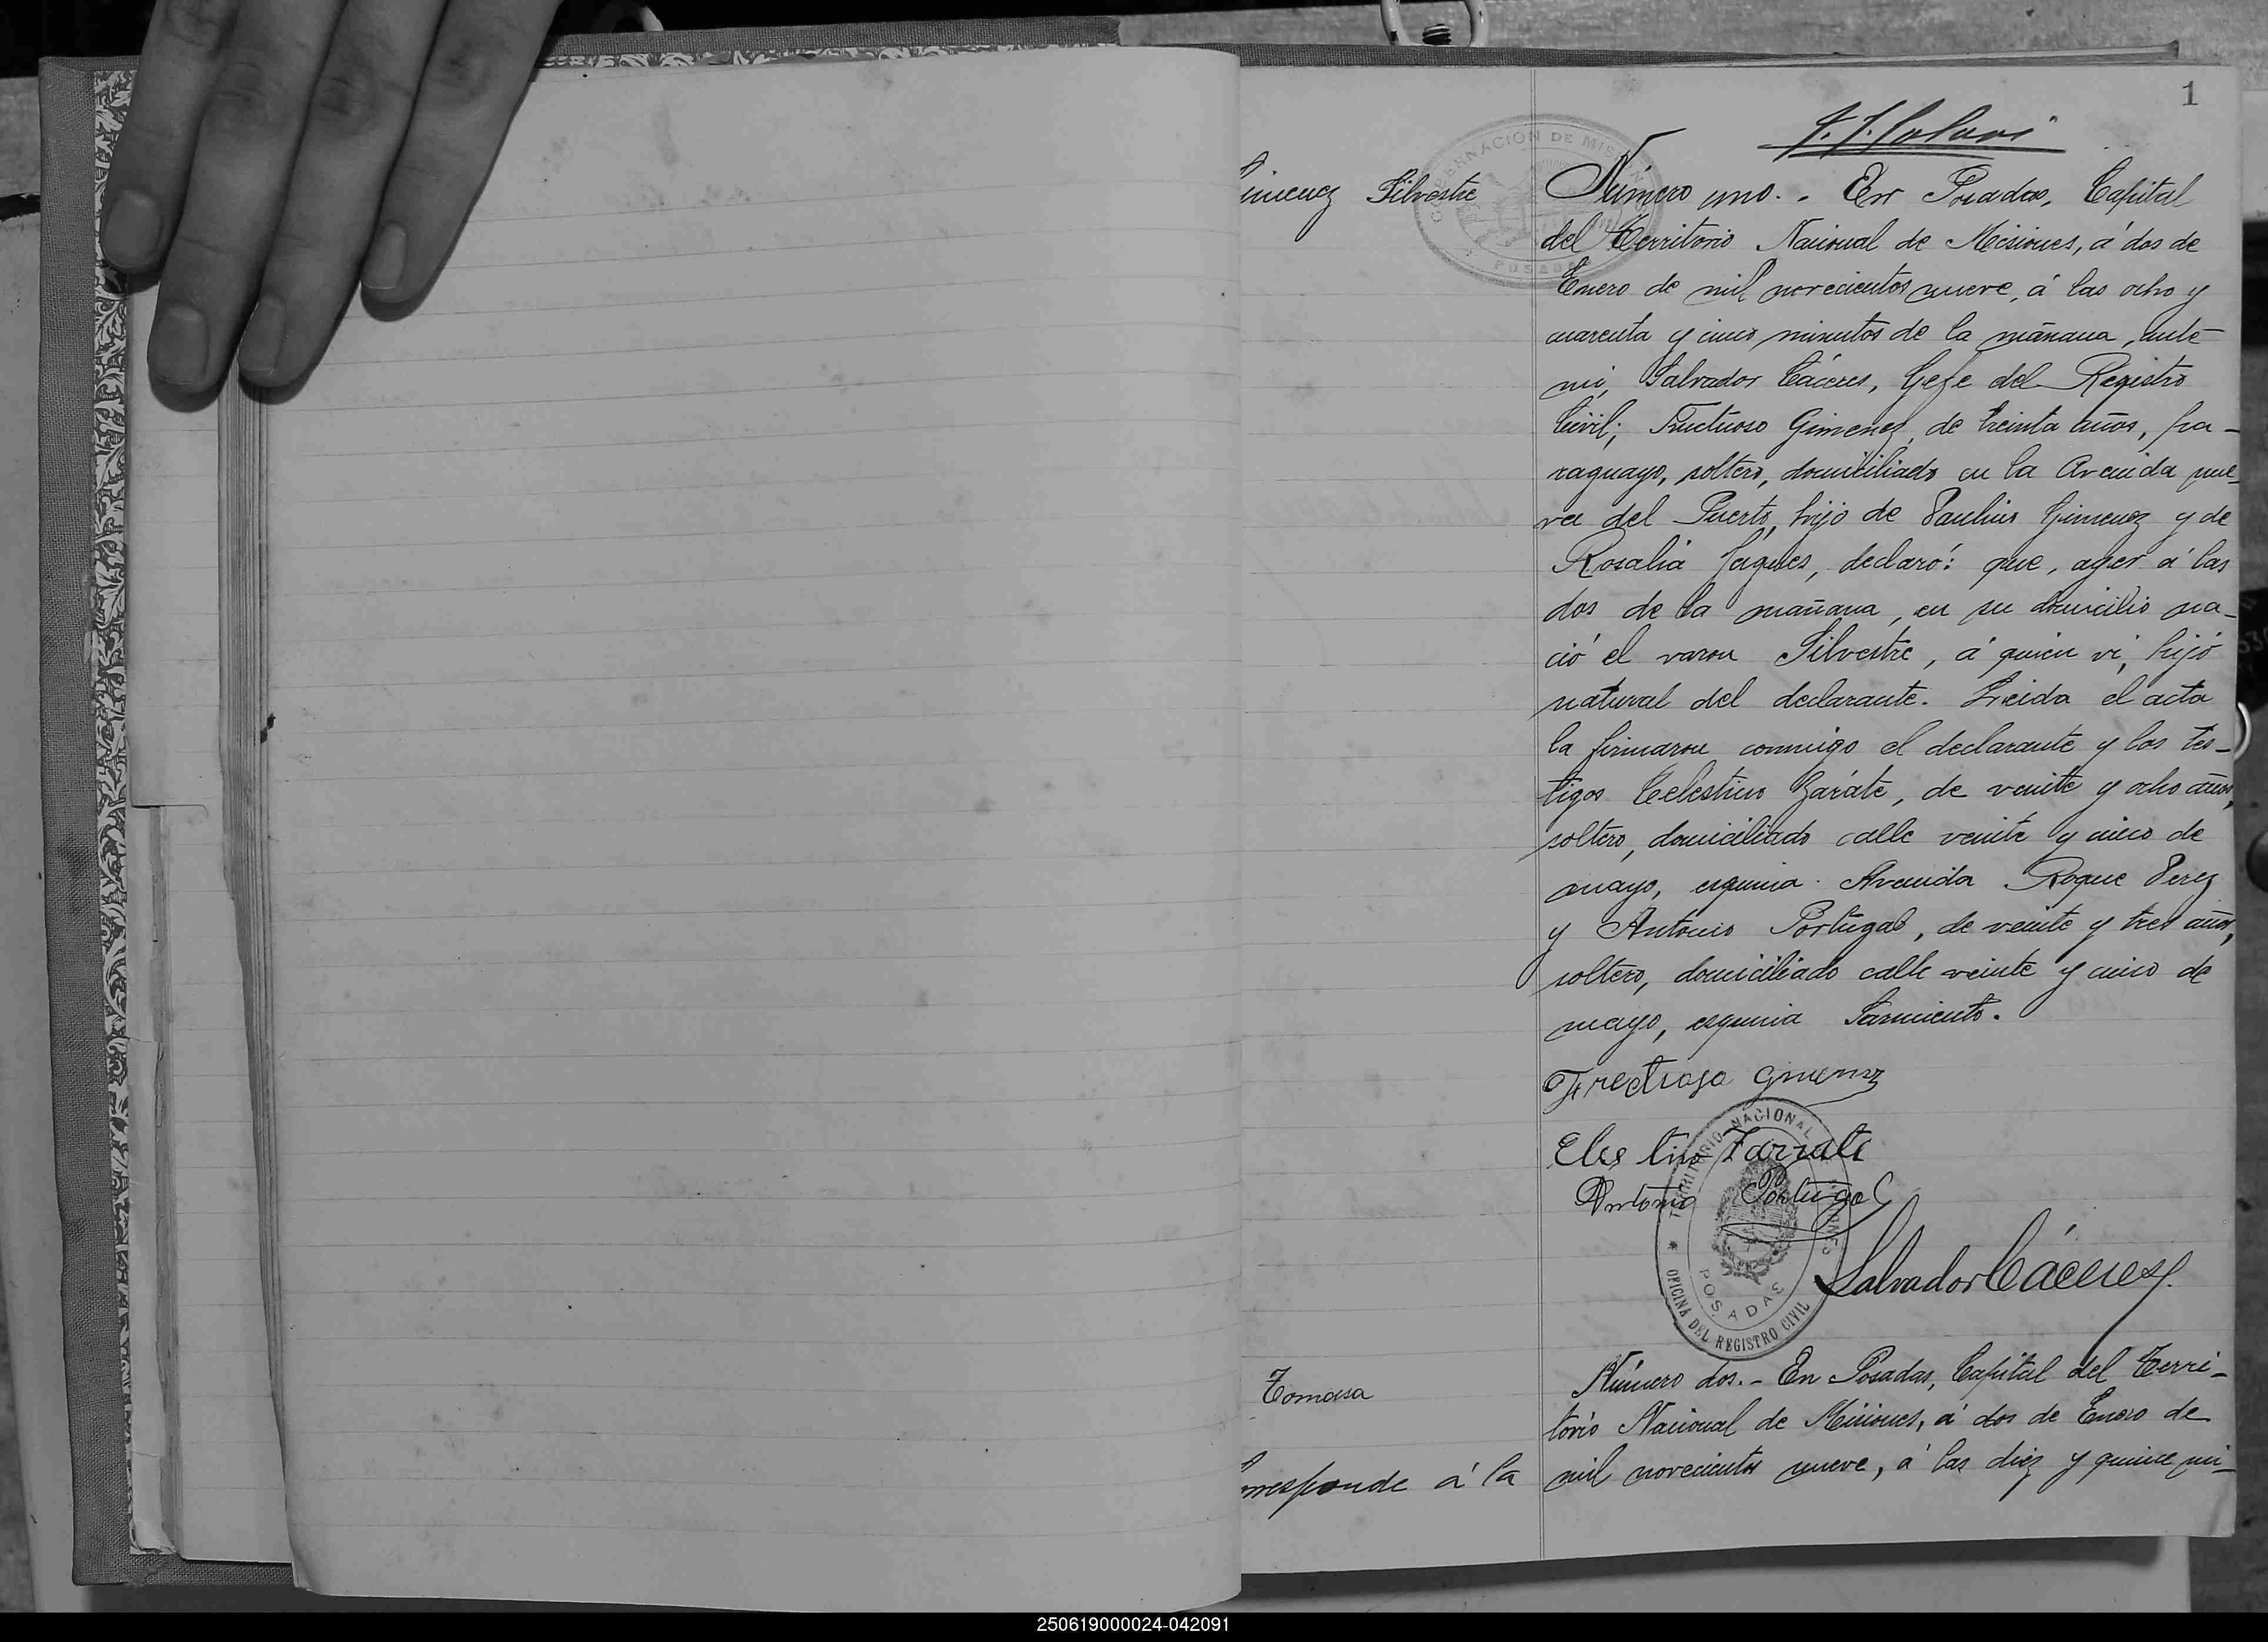 1
Gimenez Silvestre
GOBERNACIÓN DE MISIONES
POSADAS
Número uno. - En Posadas, Capital
del Territorio Nacional de Misiones, á dos de
Enero de mil novecientos nueve, á las ocho y
cuarenta y cinco minutos de la mañana, ante
mi, Salvador Cáceres, Gefe del Registro
Civil; Fructuoso Gimenez, de treinta años, pa-
raguayo, soltero, domiciliado en la Avenida nue-
va del Puerto, hijo de Paulino Gimenez y de
Rosalia, declaró: que, ayer á las
dos de la mañana, en su domicilio na-
ció el varon Silvestre, á quien vi, hijo
natural del declarante. Leida el acta
la firmaron conmigo el declarante y los tes-
tigos Celestino Zárate, de veinte y ocho años,
soltero, domiciliado calle veinte y cinco de
mayo, esquina Avenida Roque Perez
y Antonio Portugal, de veinte y tres años,
soltero, domiciliado calle veinte y cinco de
mayo, esquina Sarmiento.
Fructuoso Gimenez
Elestino Zarrate
Antonio Portugal
TERRITORIO NACIONAL MISIONES
POSADAS
OFICINA DEL REGISTRO CIVIL
Salvador Cáceres
Tomasa
Número dos. - En Posadas, Capital del Terri-
torio Nacional de Misiones, á dos de Enero de
rresponde á la
mil novecientos nueve, á las diez y quince mi-
250619000024-042091